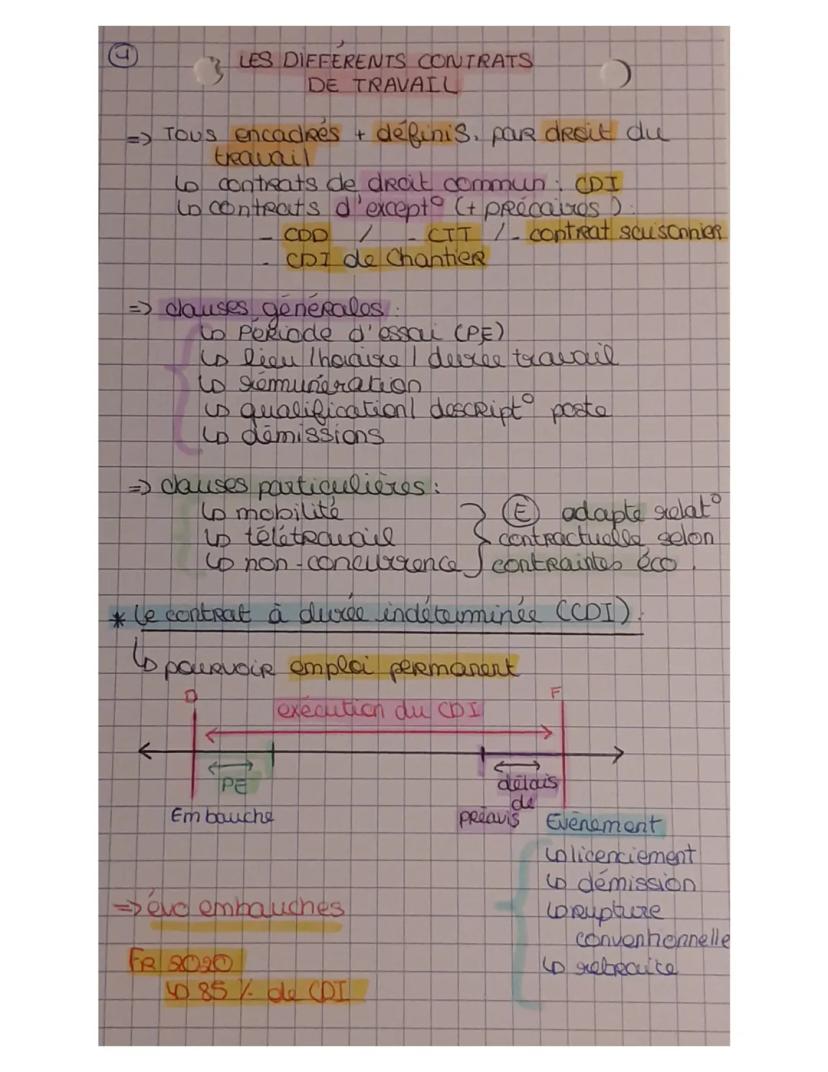 ④
LES DIFFÉRENTS CONTRATS
DE TRAVAIL
=> Tous encadrés + définis. par droit du
travail
↳ contrats de droit commun : CDI
↳ contrats d'except° (+ précaires) :
- CDD / - CTT / - contrat saisonnier
- CDI de Chantier
=> clauses générales :
↳ Période d'essai (PE)
↳ lieu / horaire / durée travail
↳ rémunération
↳ qualification / descript° poste
↳ démissions
=> clauses particulières :
↳ mobilité
↳ télétravail
↳ non-concurrence
Ⓔ adapte relat°
contractuelle selon
contraintes éco.
* Le contrat à durée indéterminée (CDI) :
↳ pourvoir emploi permanent
D F
exécution du CDI
PE
délais
de
préavis
Embauche
Evènement
↳ licenciement
↳ démission
↳ rupture
conventionnelle
↳ retraite
=> évo embauches
FR 2020
↳ 85 % de CDI